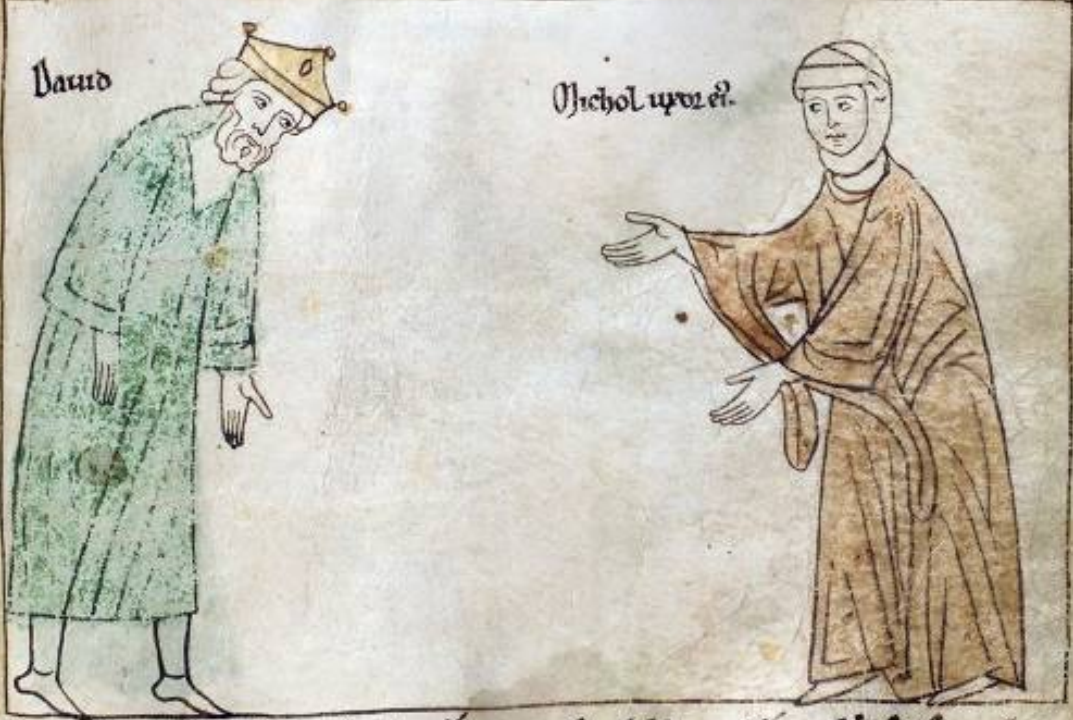 Dauid
Michol uxor ei᷒.